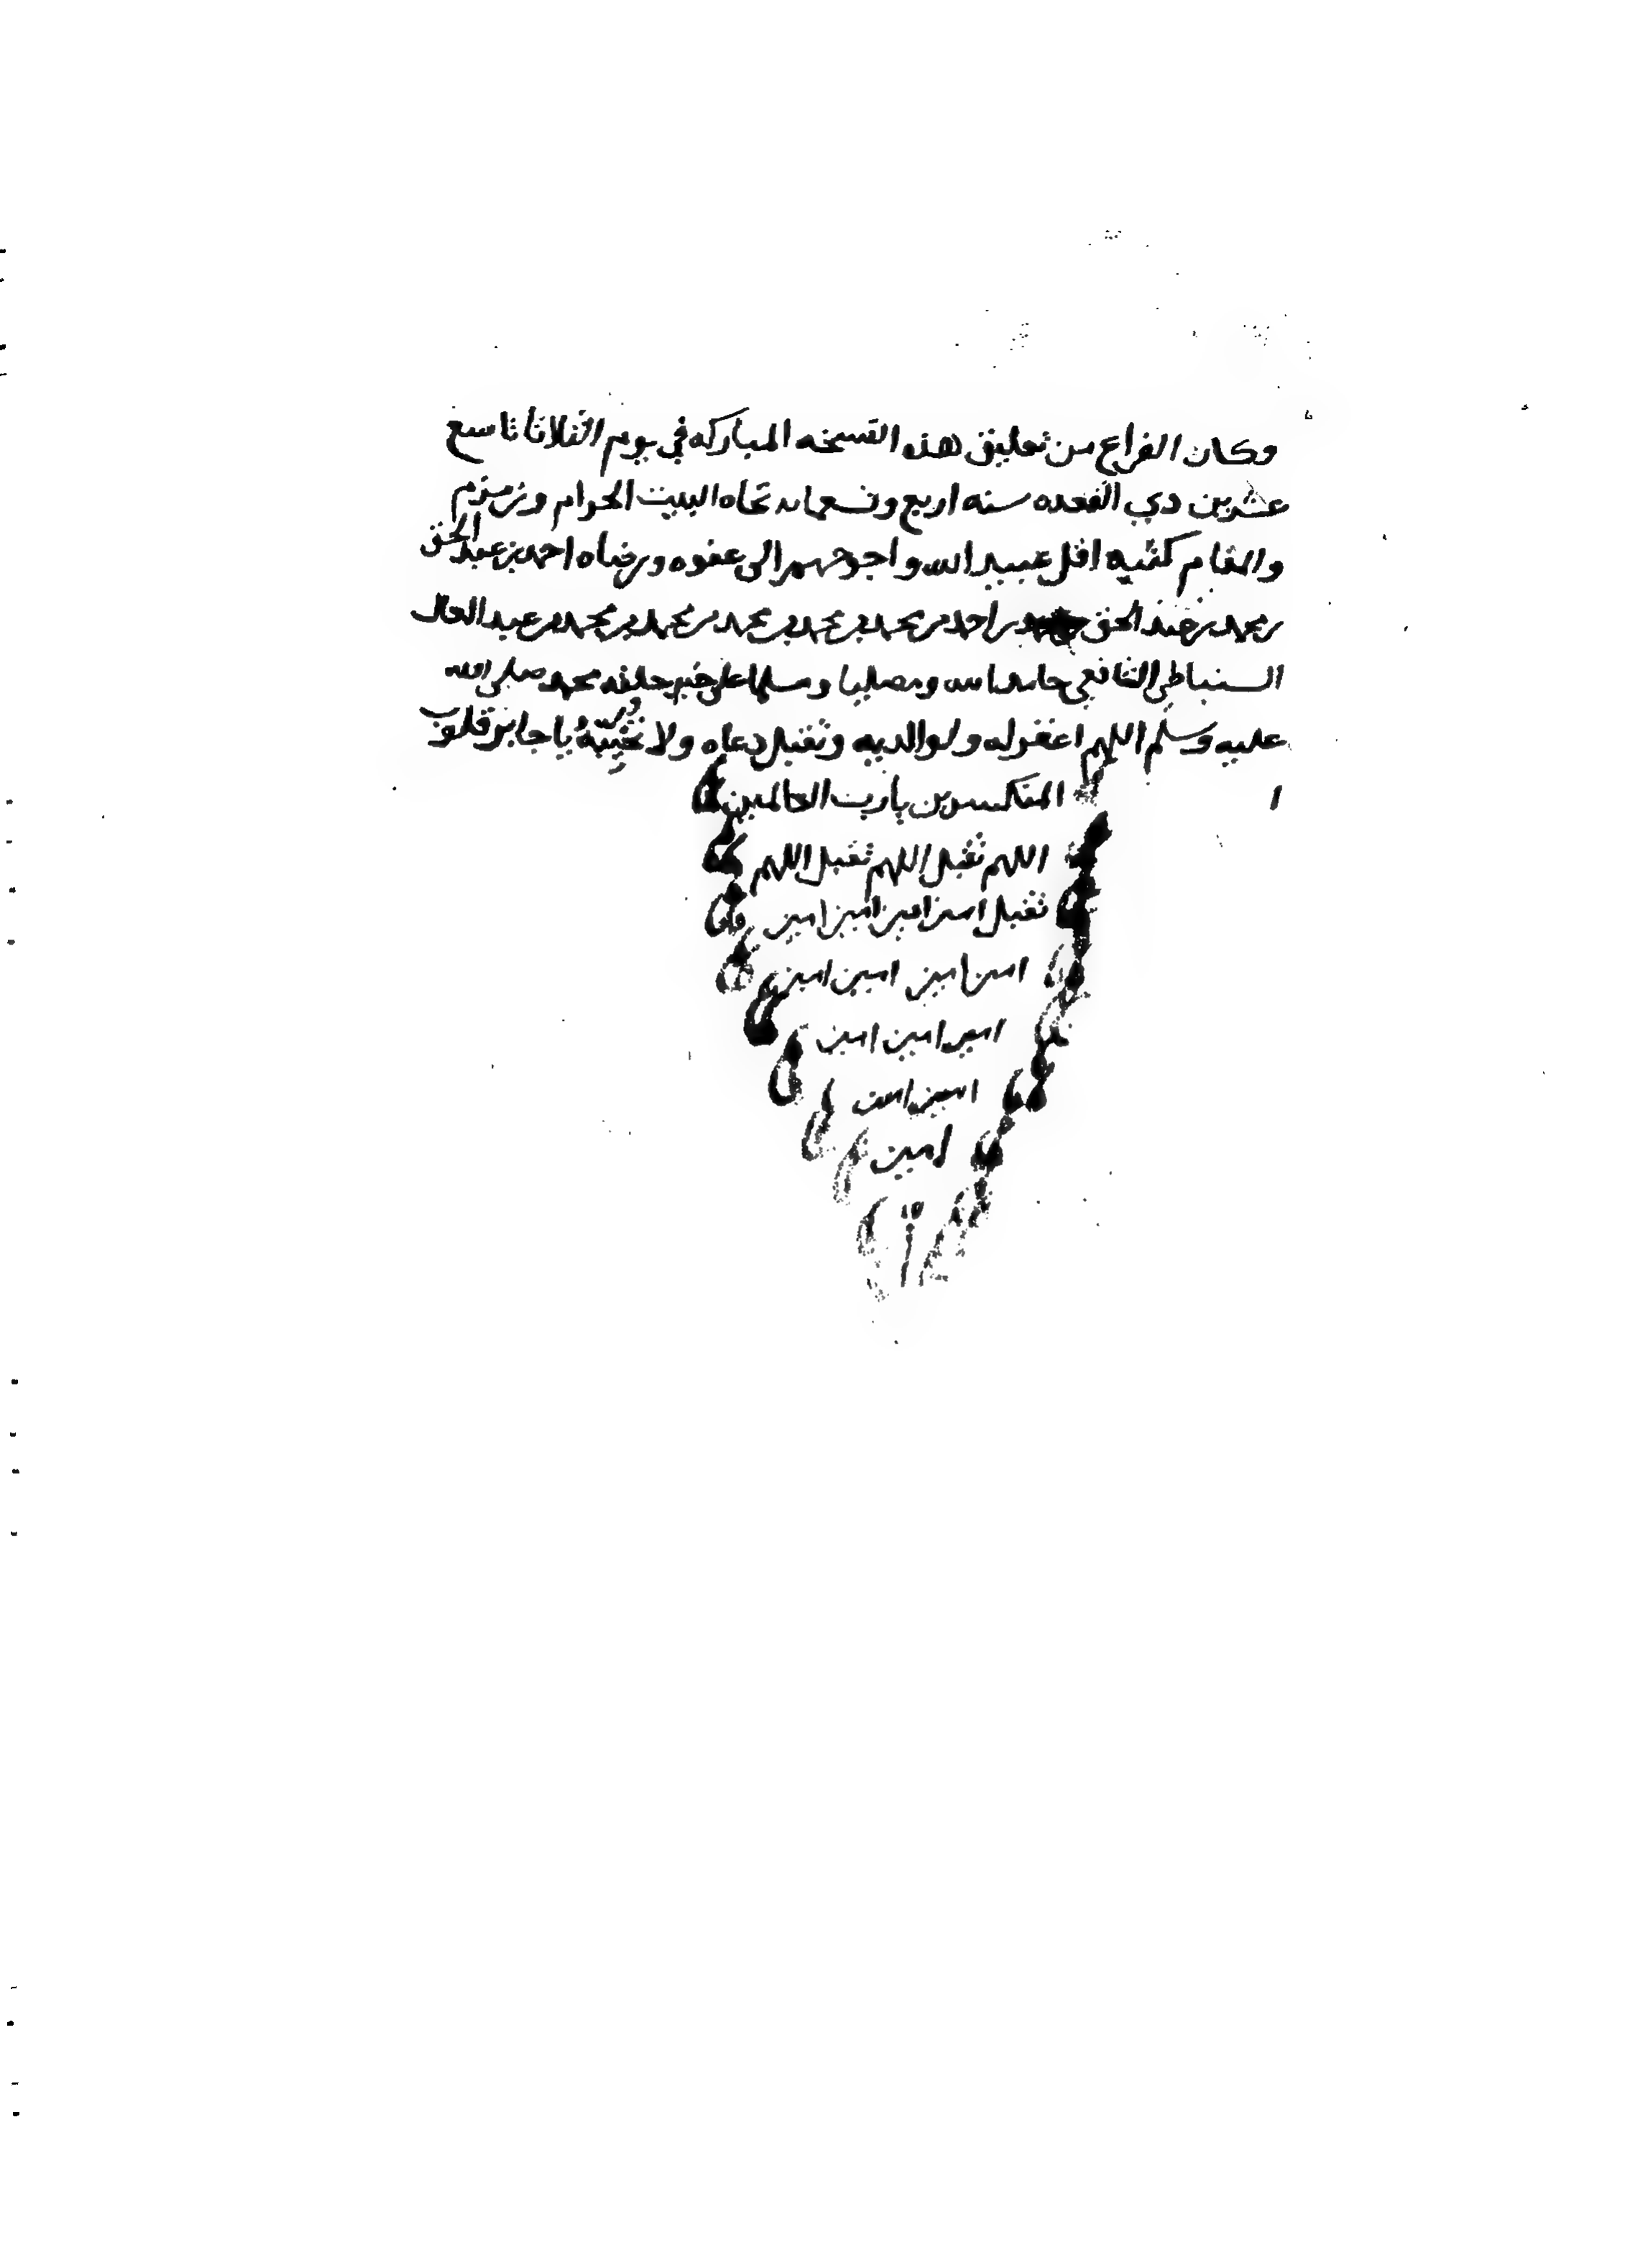 وكان الفراع من تعليق هذه النسخه المباركه في يوم الثلاثا تاسع
عشرين دي القعده سنه اربع وتسعمايه تجاه البيت الحرام وزمزم
والمقام كتبه اقل عبيد الله واحوجهم الى عفوه ورضاه احمد بن عبد الحق
بن محمد بن عبد الحق بن احمد بن محمد بن محمد بن محمد بن محمد بن محمد بن عبد العال
السنباطي الشافعي حامدا لله ومصليا ومسلما على خير خلقه محمد صلى الله
عليه وسلم اللهم اغفر له ولوالديه وتقبل دعاه ولا تخيبه يا جابر قلوب
المنكسرين يا رب العالمين
اللهم تقبل اللهم تقبل اللهم
تقبل امين امين امين امين
امين امين امين امين
امين امين امين
امين امين
امين